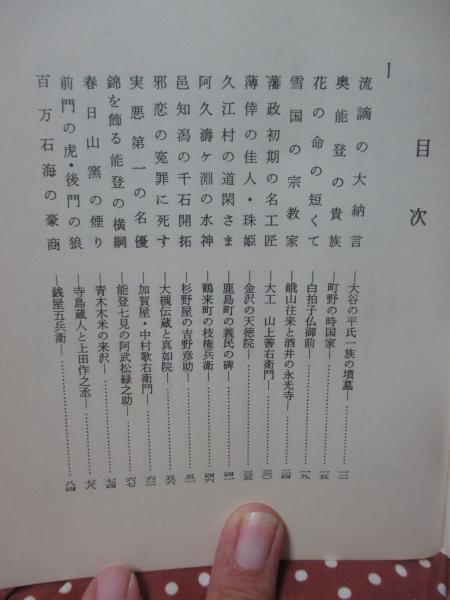 目次
I
流謫の大納言 ―大谷の平氏一族の墳墓―………一三
奥能登の貴族 ―町野の時国家―………一五
花の命の短くて ―白拍子仏御前―………一九
雪国の宗教家 ―峨山往来と酒井の永光寺―………二四
藩政初期の名工匠 ―大工 山上善右衛門―………三〇
薄倖の佳人・珠姫 ―金沢の天徳院―………三五
久江村の道閑さま ―鹿島町の義民の碑―………四一
阿久濤ヶ淵の水神 ―鶴来町の枝権兵衛―………四六
邑知潟の千石開拓 ―杉野屋の吉野彦助―………五一
邪恋の冤罪に死す ―大槻伝蔵と真如院―………五六
実悪第一の名優 ―加賀屋・中村歌右衛門―………六二
錦を飾る能登の横綱 ―能登七見の阿武松緑之助―………六七
春日山窯の煙り ―青木木米の来沢―………七四
前門の虎・後門の狼 ―寺島蔵人と上田作之丞―………七八
百万石海の豪商 ―銭屋五兵衛―………八四